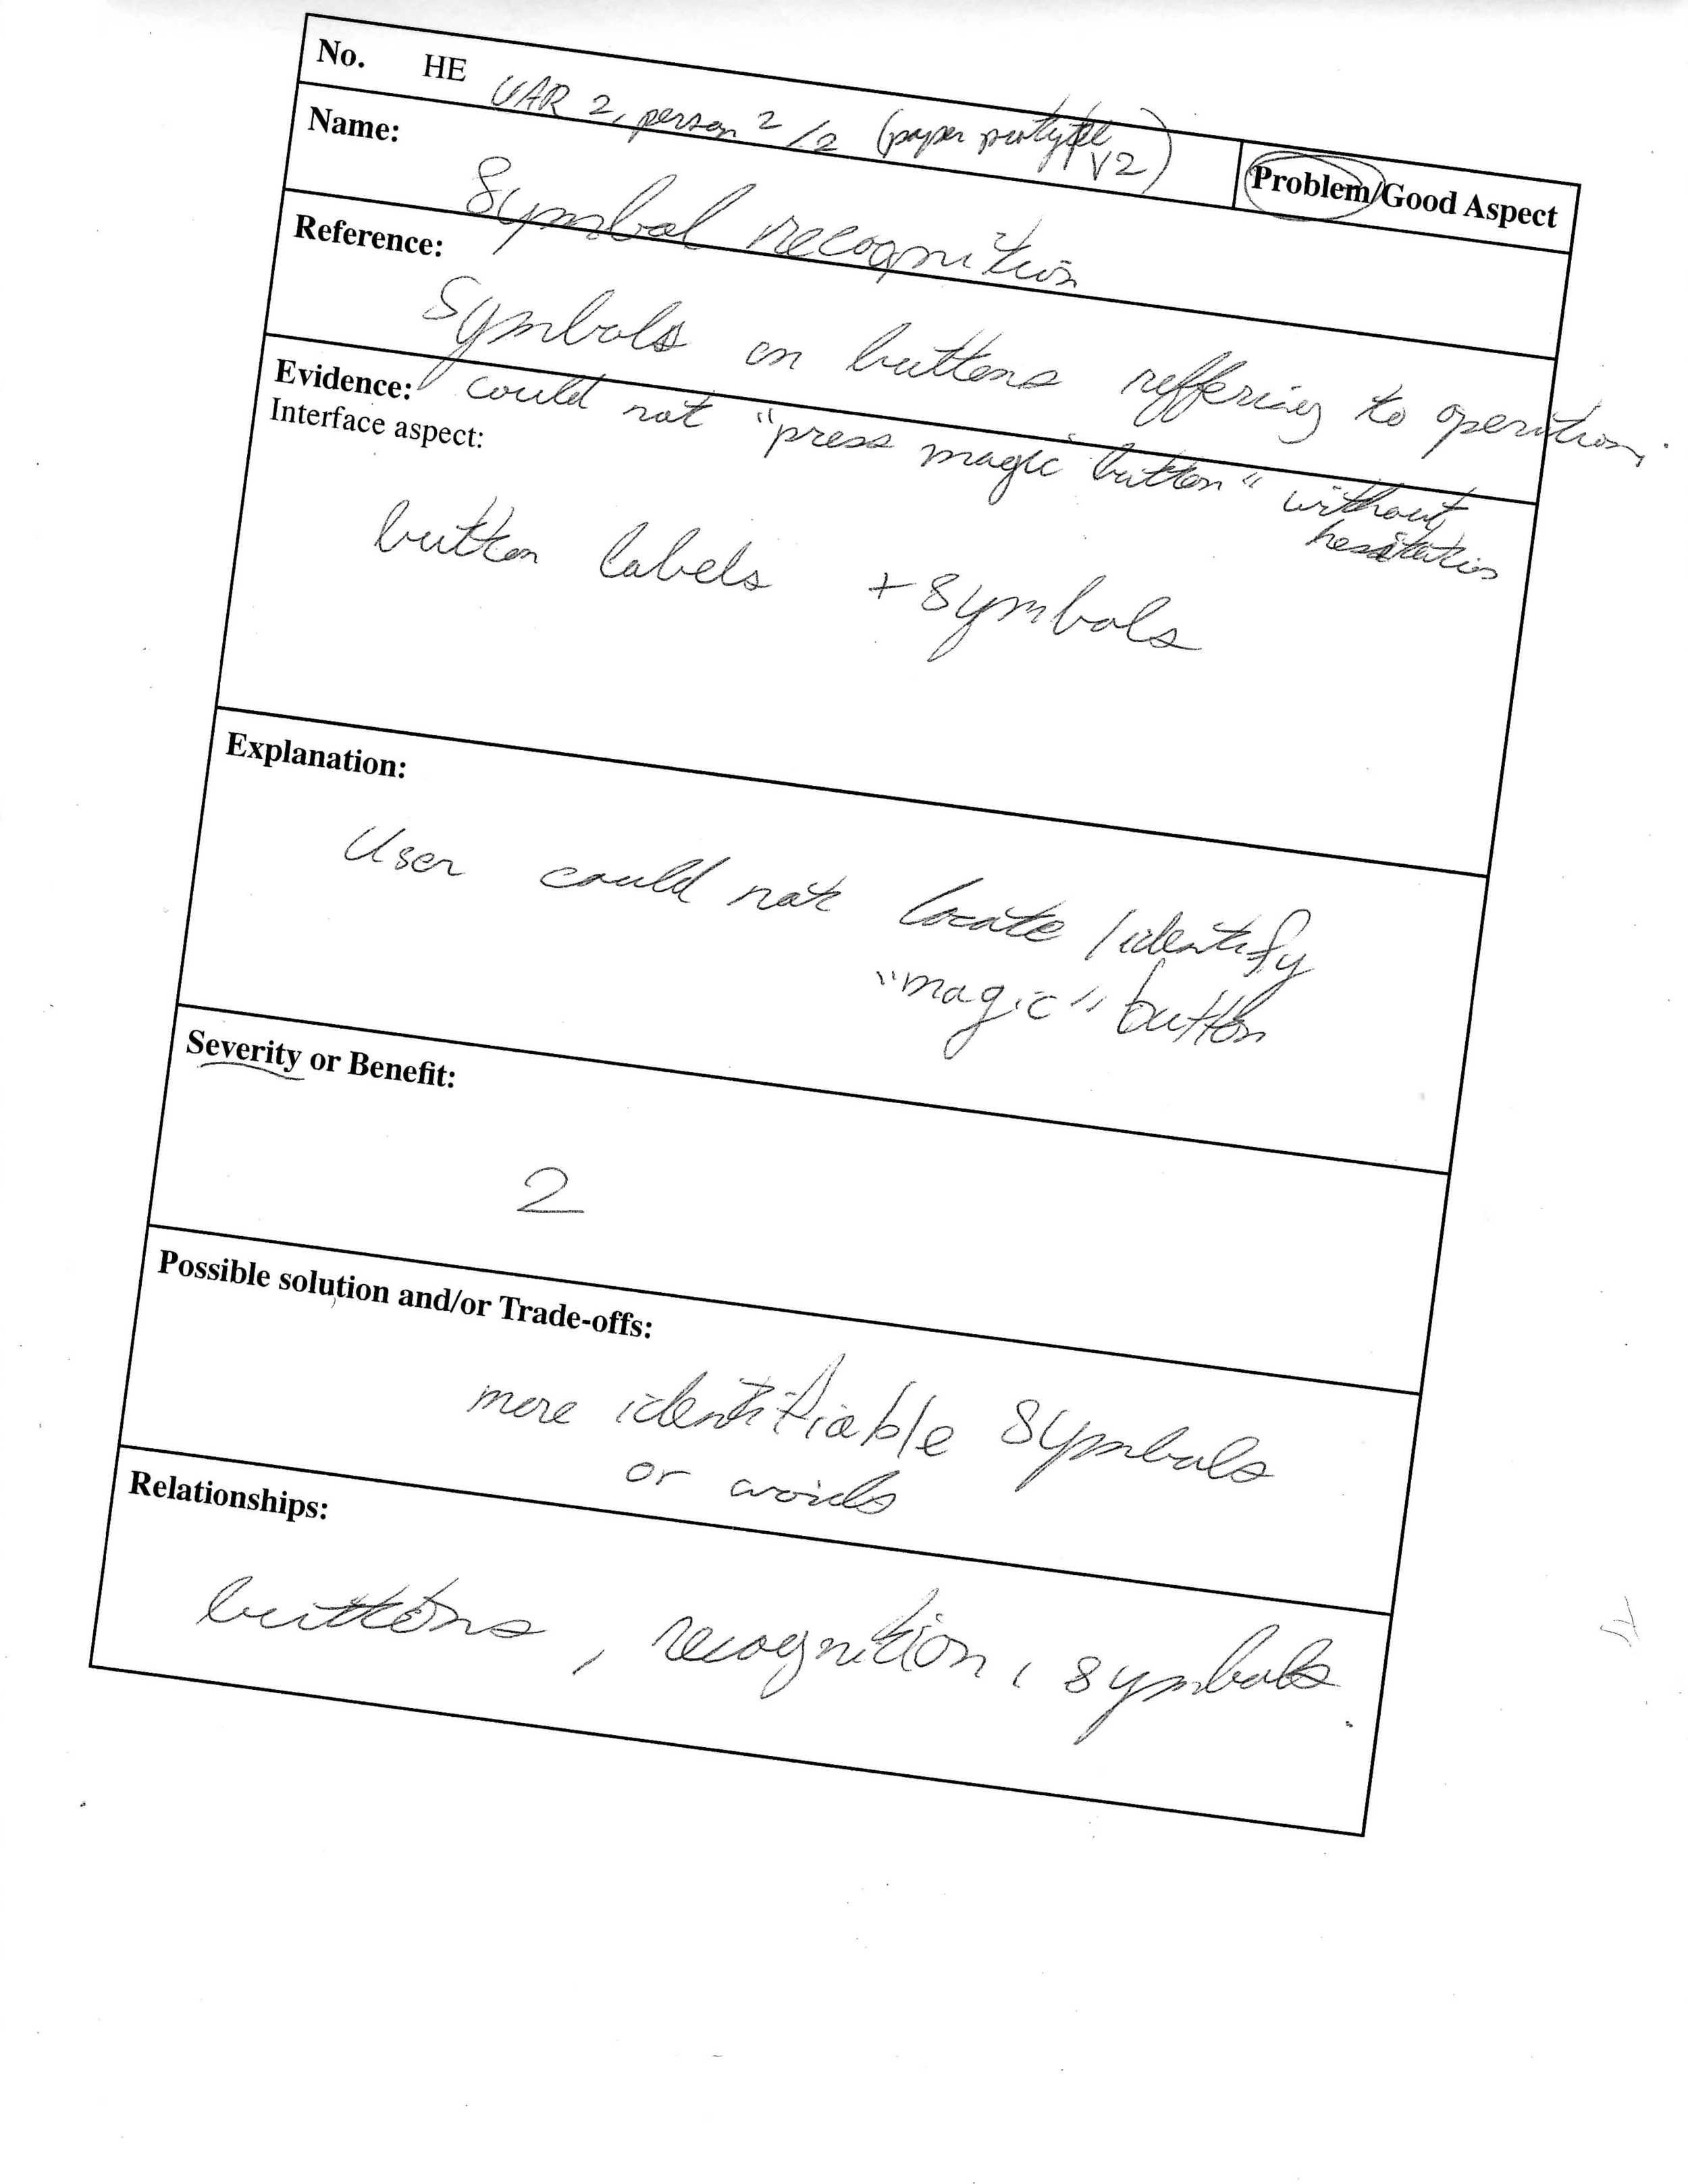 No. HE UAR 2, person 2/2 (paper prototype V2)
Problem/Good Aspect
Name:
Symbol recognition
Reference:
Symbols on buttons reffering to operation.
Evidence: could not "press magic button" without hesitation
Interface aspect:
button labels + symbols
Explanation:
User could not locate / identify
"magic" button
Severity or Benefit:
2
Possible solution and/or Trade-offs:
more identifiable symbols
or words
Relationships:
buttons, recognition, symbols.